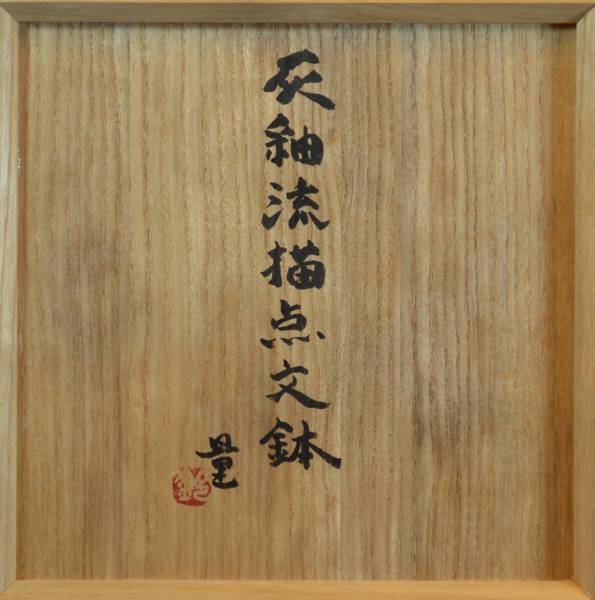 灰釉流描点文鉢
量